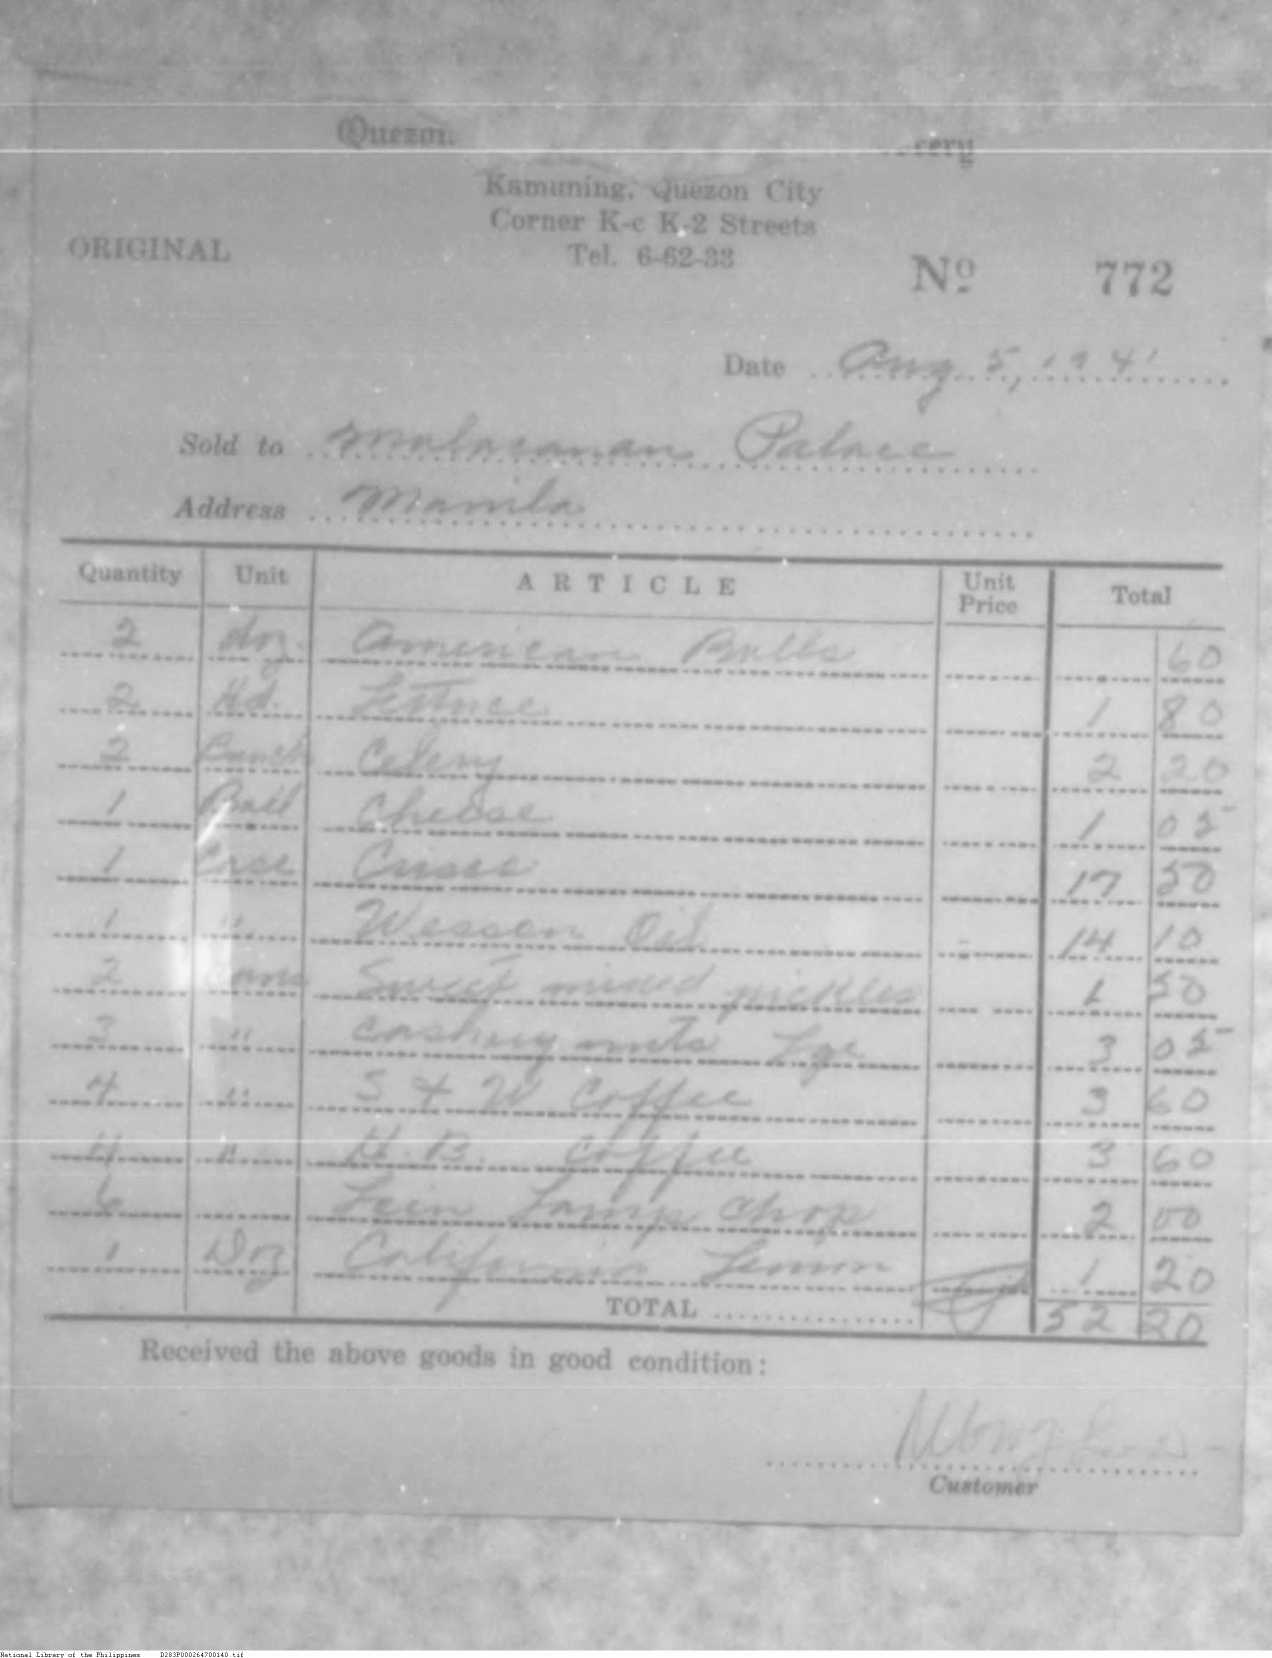 Quezon
Kamuning, Quezon City
Corner K-c K-2 Streets
ORIGINAL
Tel. 6-62-33
Nº 772
Date Aug 5, 1941
Sold to Malacanan Palace
Address Manila
Quantity Unit ARTICLE Unit Price Total
2 doz. American Balls 60
2 Hd. Lettuce 1 80
2 Bunch Celery 2 20
1 Ball Cheese 1 05
1 Case 17 50
1 " Wesson Oil 14 10
2 Cans Sweet mixed pickles 1 50
3 " cashuy nuts Lge 3 05
4 " S & W Coffee 3 60
4 " H.B. Coffee 3 60
6 Lein Lamp Chop 2 00
1 Doz California Lemon 1 20
TOTAL 52 20
Received the above goods in good condition:
Customer
National Library of the Philippines D283P000264700140.tif